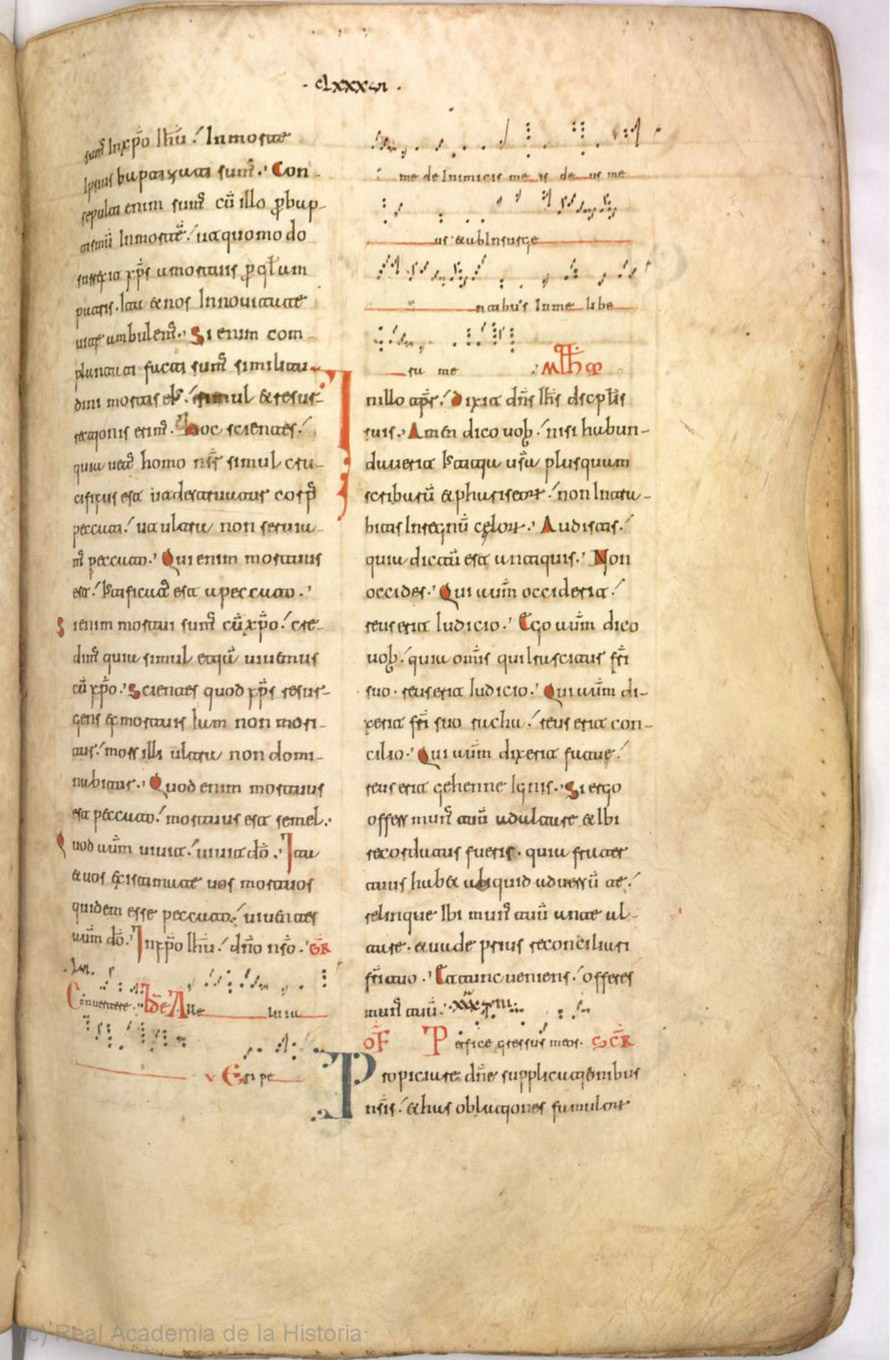 · clxxxvi ·
sum9 In xp̅o ih̅u ./ In morte
ipsius baptizati sum9 .· Con-
sepulti enim sum9 cu̅ illo p̱ bap-
tismu̅ In morte̅ ./ ut quomodo
surrexit xp̅s a mortuis p̱ gl̅am
patris . Ita & nos In novitate
vite ambulem9 .· Si enim com-
plantati facti sum9 similitu-
dini mortis ei9 ./ simul & resur-
rectionis erim9 .· Hoc scientes ./
quia vet9 homo nr̅s simul cru-
cifixus est ut destruatur corp9
peccati ./ ut ultra non servia-
m9 peccato .· Qui enim mortuus
est ./ Iustificat9 est a peccato .·
Si enim mortui sum9 cu̅ xp̅o ./ cre-
dim9 quia simul etia̅ vivemus
cu̅ xp̅o .· Scientes quod xp̅s resur-
gens ex mortuis Iam non mori-
tur ./ mors illi ultra non domi-
nabitur .· Quod enim mortuus
est peccato ./ mortuus est semel .·
Quod aute̅ vivit ./ vivit do̅ .· Ita
& vos existimate vos mortuos
quidem esse peccato ./ viventes
aute̅ do̅ .· In xp̅o ih̅u ./ dn̅o nr̅o .· GR
Convertere .· Alle luia
V Eripe
me de Inimicis me is de us me
us & ab Insurge
ntibus In me libe
ra me .· MTHM
In illo tpr̅e ./ Dixit dn̅s ih̅s discplis
suis .· Amen dico vob ./ nisi habun-
daverit Iustitia vr̅a plusquam
scribaru̅ & phariseor ./ non Intra-
bitis In regnu̅ celor .· Audistis ./
quia dictu̅ est antiquis .· Non
occides .· Qui aut̅m occiderit ./
reus erit Iudicio .· Ego aut̅m dico
vob ./ quia omis̅ qui Irascitur fr̅i
suo . reus erit Iudicio .· Qui aut̅m di-
xerit fr̅i suo racha ./ reus erit con-
cilio .· Qui aut̅m dixerit fatue ./
reus erit gehenne Ignis .· Si ergo
offers mun9 tuu̅ ad altare & Ibi
recordatus fueris . quia frater
tuus hab& aliquid adversu̅ te ./
relinque Ibi mun9 tuu̅ ante al-
tare . & vade prius reconciliari
fr̅i tuo .· Et tunc veniens ./ offeres
mun9 tuu̅ .·
OF Perfice gressus meos . SCR
Propitiare dn̅e supplicationibus
nr̅is ./ & has oblationes famulor
(c) Real Academia de la Historia